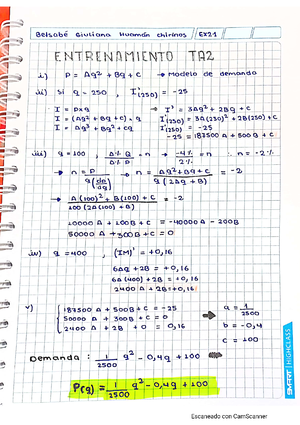 Belsabé Giuliana Huamán Chirinos // EX21
ENTRENAMIENTO TA2
i) P = Aq² + Bq + C → Modelo de demanda
ii) Si q = 250, I'(250) = -25
I = P×q → I' = 3Aq² + 2Bq + C
I = (Aq² + Bq + C)·q I'(250) = 3A(250)² + 2B(250) + C
I = Aq³ + Bq² + Cq I'(250) = -25
-25 = 187500 A + 500 B + C
iii) q = 100, Δ% Q / Δ% P = n → -4% / 2% = n ∴ n = -2%
→ n = P / q(dp/dq) → n = Aq² + Bq + C / q(2Aq + B) = -2
→ A(100)² + B(100) + C / 100(2A(100) + B) = -2
10000 A + 100B + C = -40000 A - 200B
50000 A + 300B + C = 0
iv) q = 400, (IM)' = +0,16
6Aq + 2B = +0,16
6A(400) + 2B = +0,16
2400 A + 2B = +0,16
v) 187500 A + 500 B + C = -25 a = 1/2500
50000 A + 300 B + C = 0 b = -0,4
2400 A + 2B + 0 = 0,16 c = 100
Demanda: 1/2500 q² - 0,4q + 100
P(q) = 1/2500 q² - 0,4q + 100
SMART | HIGHCLASS
Escaneado con CamScanner